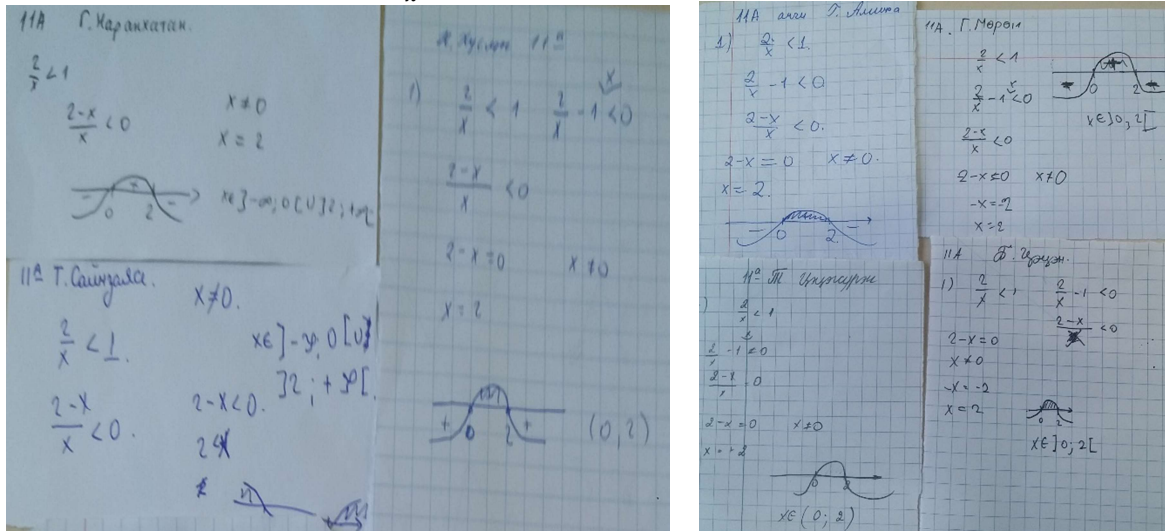 11А Г. Наранхатан.
2/x < 1
(2-x)/x < 0
x ≠ 0
x = 2
- + -
0 2
x∈]-∞; 0[∪]2; +∞[
11ª Т. Сайнзаяа.
x ≠ 0.
2/x < 1.
x∈]-∞, 0[∪
]2; +∞[.
(2-x)/x < 0.
2-x < 0.
2 < x
11ª
1) 2/x < 1
2/x - 1 < 0
x
(2-x)/x < 0
2-x = 0 x ≠ 0
x = 2
+ +
0 2
(0, 2)
11А анги Г. Амина
1) 2/x < 1.
2/x - 1 < 0
(2-x)/x < 0.
2-x = 0 x ≠ 0.
x = 2.
- -
0 2
11А. Г. Мөрөн
2/x < 1
x
2/x - 1 < 0
(2-x)/x < 0
2-x ≠ 0 x ≠ 0
-x = -2
x = 2
0 2
x∈]0; 2[
11ª Т
2/x < 1
2-x = 0 x ≠ 0
x = +2
x∈(0; 2)
11А Б. Цэцэн.
1) 2/x < 1
2/x - 1 < 0
2-x < 0
2-x = 0
x ≠ 0
-x = -2
x = 2
0 2
x∈]0; 2[